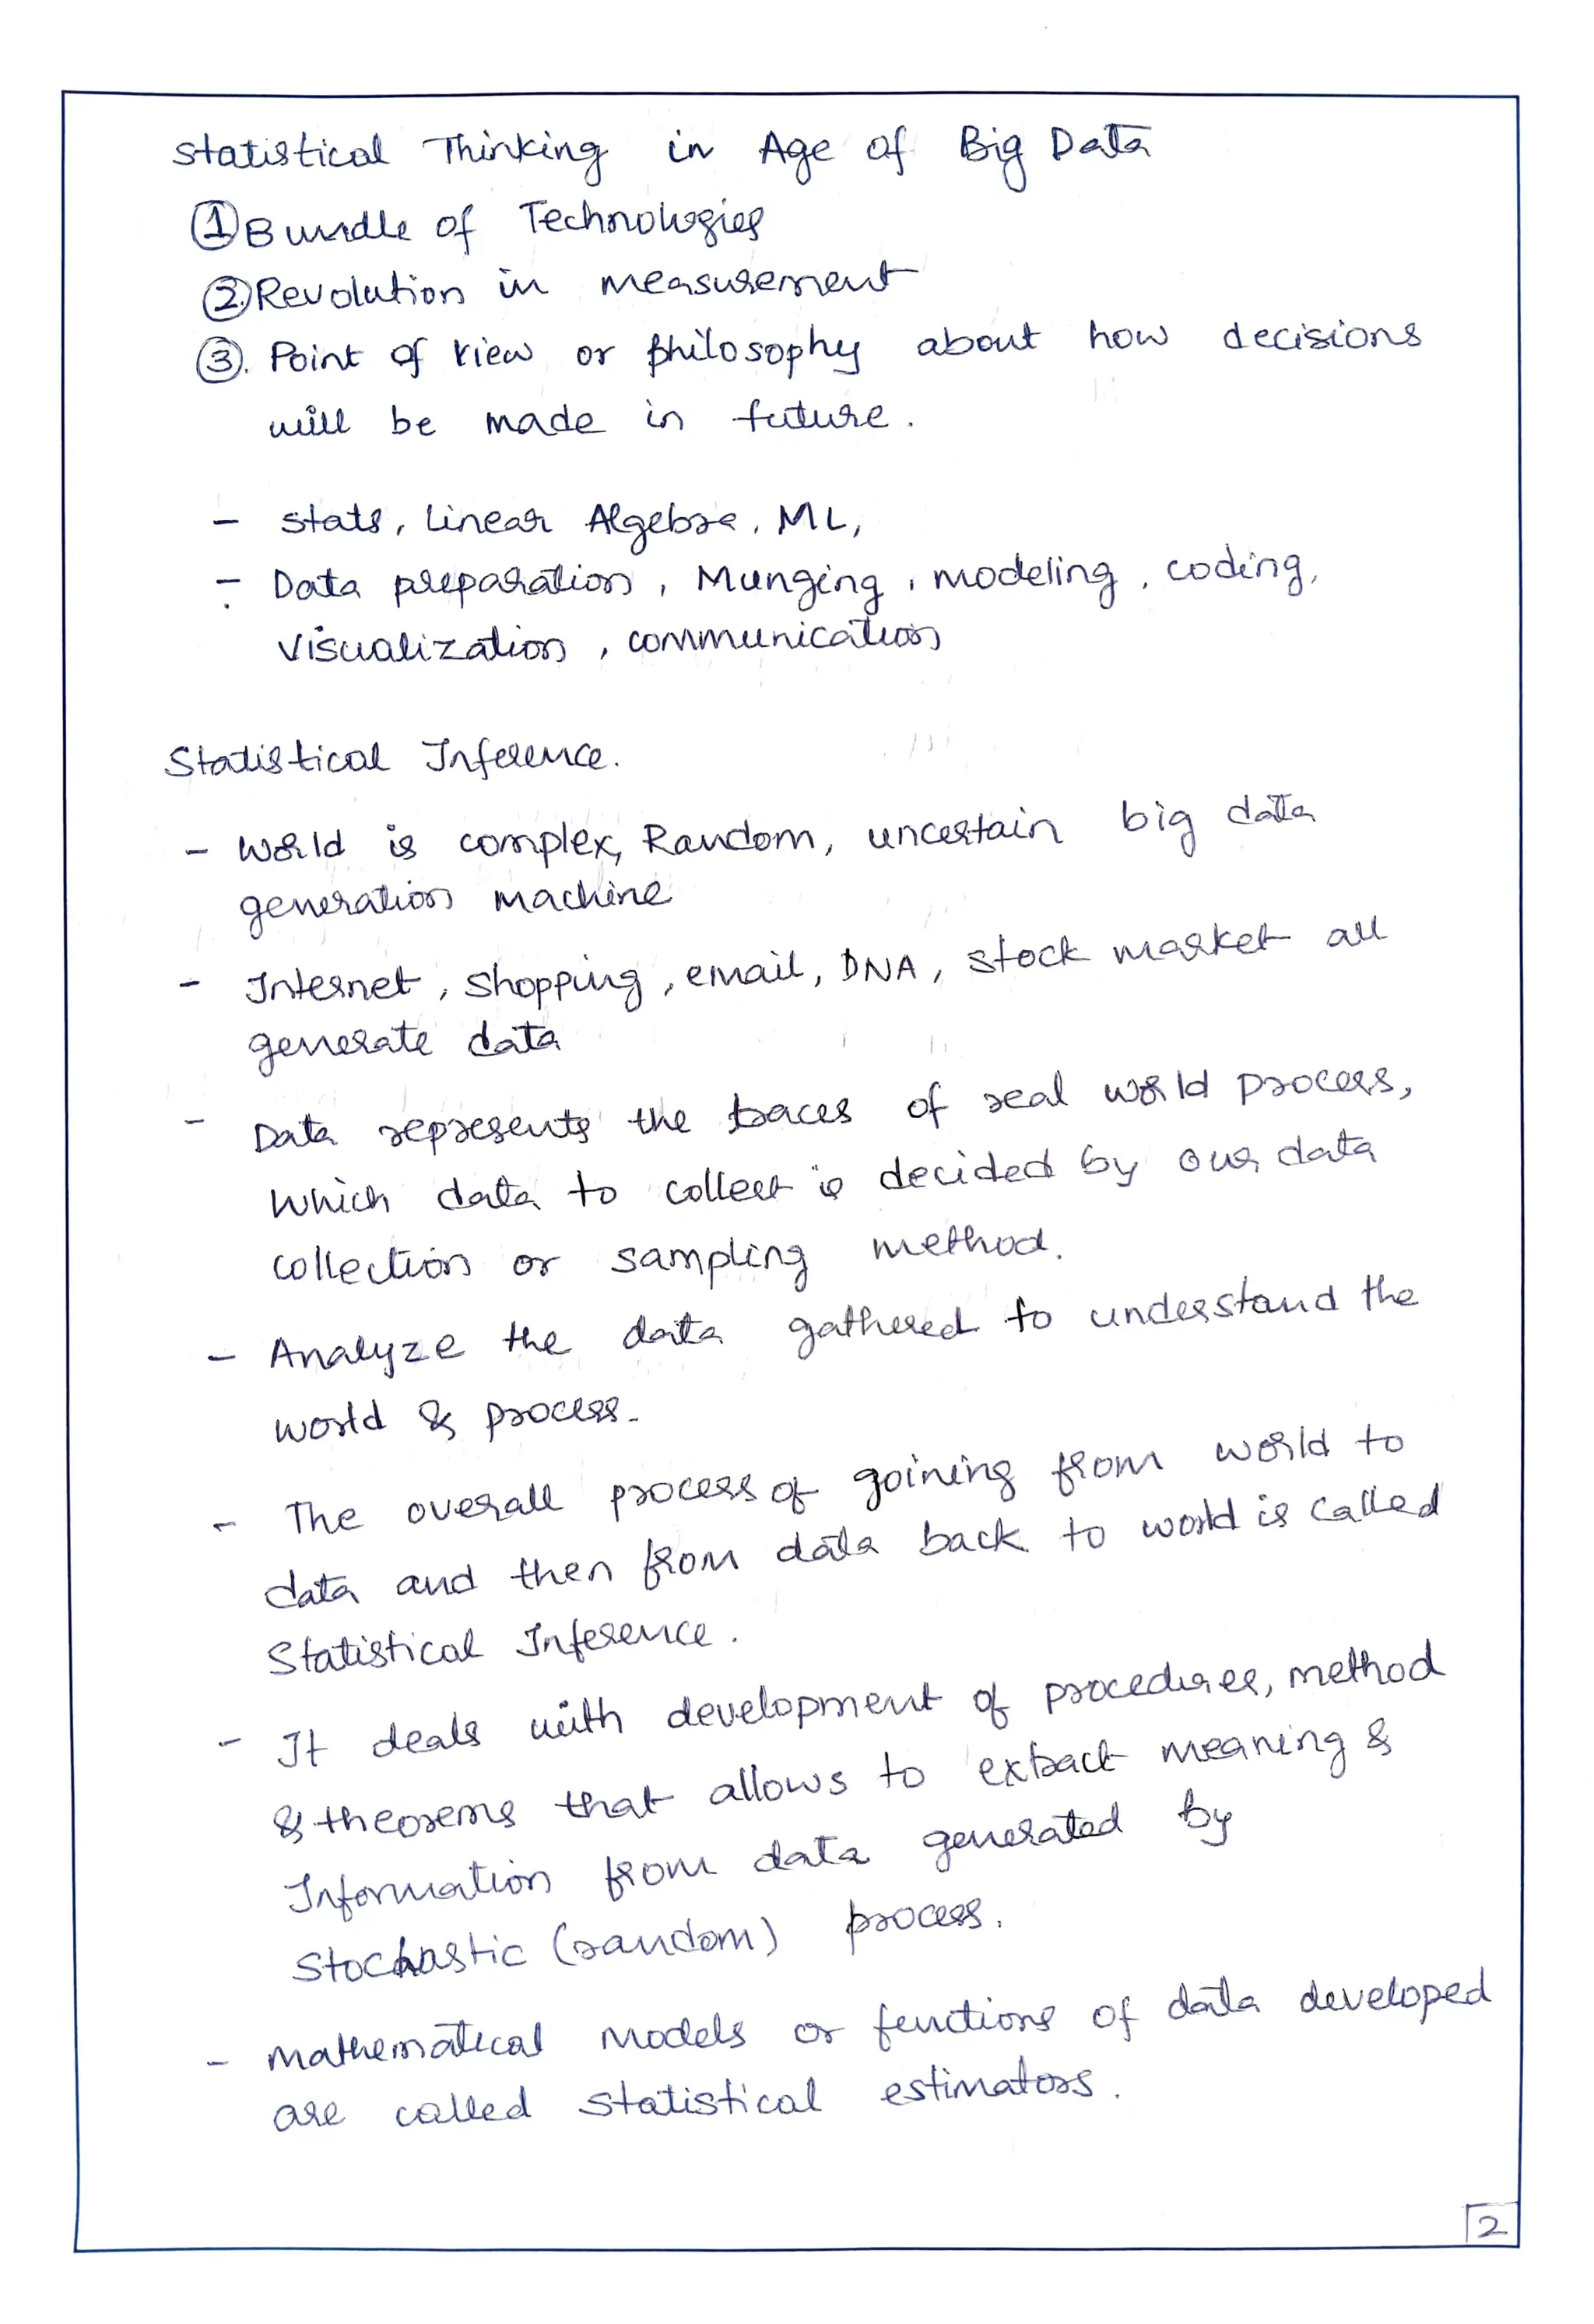 Statistical Thinking in Age of Big Data
① Bundle of Technologies
② Revolution in measurement
③. Point of view or philosophy about how decisions
will be made in future.
- stats, Linear Algebra, ML,
- Data preparation, Munging, modeling, coding,
visualization, communication
Statistical Inference.
- World is complex, Random, uncertain big data
generation machine
- Internet, shopping, email, DNA, stock market all
generate data
- Data represents the traces of real world process,
which data to collect is decided by our data
collection or sampling method.
- Analyze the data gathered to understand the
world & process.
- The overall process of goining from world to
data and then from data back to world is called
Statistical Inference.
- It deals with development of procedures, method
& theorems that allows to extract meaning &
Information from data generated by
stochastic (random) process.
- Mathematical models or functions of data developed
are called statistical estimators.
2